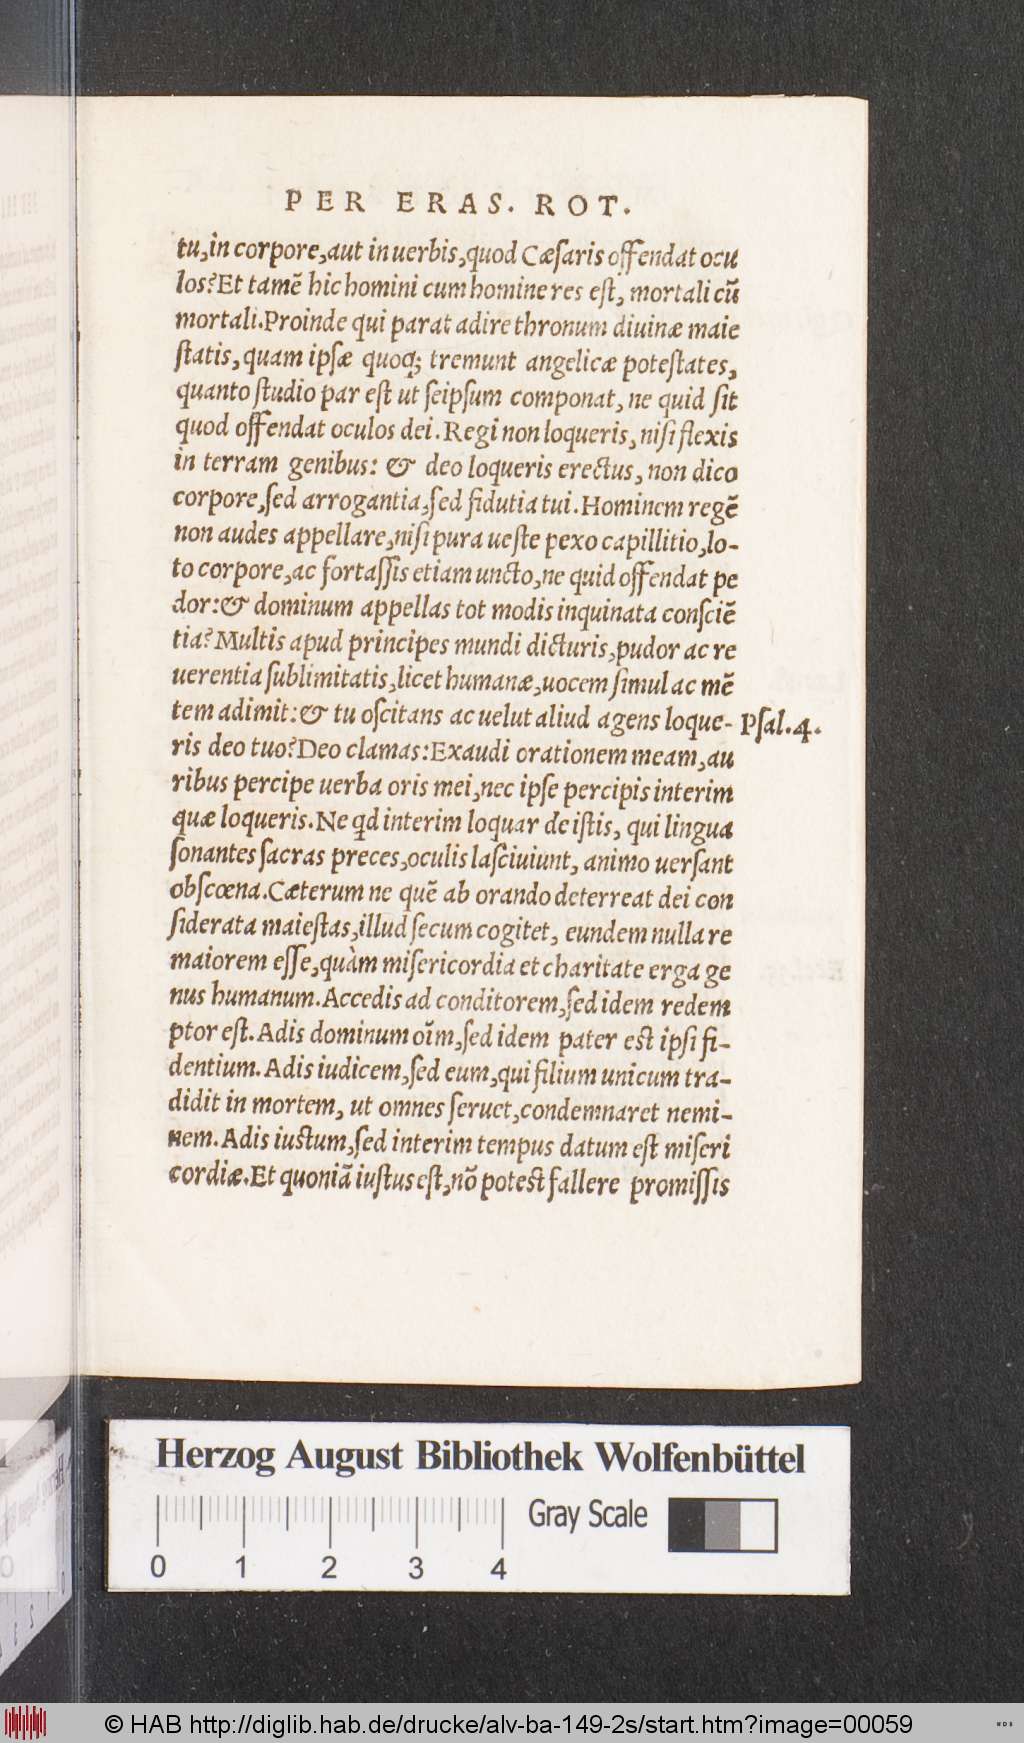 PER ERAS. ROT.
tu,in corpore,aut in uerbis,quod Cæſaris offendat ocu
los?Et tamē hic homini cum homine res eſt, mortali cū
mortali.Proinde qui parat adire thronum diuinæ maie
ſtatis,quam ipſæ quoq; tremunt angelicæ poteſtates,
quanto ſtudio par eſt ut ſeipſum componat, ne quid ſit
quod offendat oculos dei.Regi non loqueris, niſi flexis
in terram genibus: & deo loqueris erectus, non dico
corpore,ſed arrogantia,ſed fidutia tui.Hominem regē
non audes appellare,niſi pura ueſte pexo capillitio,lo-
to corpore,ac fortaſſis etiam uncto,ne quid offendat pe
dor:& dominum appellas tot modis inquinata conſciē
tia?Multis apud principes mundi dicturis,pudor ac re
uerentia ſublimitatis,licet humanæ,uocem ſimul ac mē
tem adimit:& tu oſcitans ac uelut aliud agens loque-
Pſal.4.
ris deo tuo?Deo clamas:Exaudi orationem meam,au
ribus percipe uerba oris mei,nec ipſe percipis interim
quæ loqueris.Ne qd interim loquar de iſtis, qui lingua
ſonantes ſacras preces,oculis laſciuiunt, animo uerſant
obſcœna.Cæterum ne quē ab orando deterreat dei con
ſiderata maieſtas,illud ſecum cogitet, eundem nulla re
maiorem eſſe,quàm miſericordia et charitate erga ge
nus humanum.Accedis ad conditorem,ſed idem redem
ptor eſt.Adis dominum oīm,ſed idem pater est ipſi fi-
dentium.Adis iudicem,ſed eum,qui filium unicum tra-
didit in mortem, ut omnes ſeruet,condemnaret nemi-
nem.Adis iustum,ſed interim tempus datum eſt miſeri
cordiæ.Et quoniā iuſtus eſt,nō potest fallere promiſſis
Herzog August Bibliothek Wolfenbüttel
Gray Scale
0 1 2 3 4
© HAB http://diglib.hab.de/drucke/alv-ba-149-2s/start.htm?image=00059